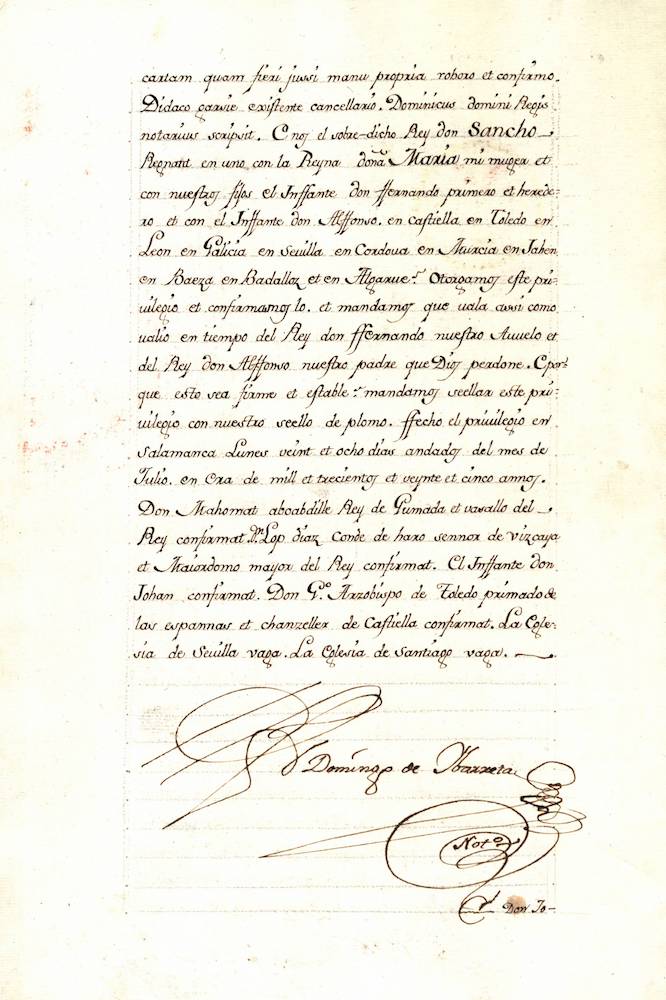 cartam quam fieri jussi manu propria roboro et confirmo.
Didaco garsie existente cancellario. Dominicus domini Regis
notarius scripsit. E nos el sobre-dicho Rey don Sancho
Regnant en uno con la Reyna doña Maria mi muger et
con nuestros fijos el Inffante don ffernando primero et herede-
ro et con el Inffante don Alffonso. en Castiella en Toledo en
Leon en Galicia en Sevilla en Cordova en Murcia en Jahen
en Baeza en Badalloz et en Algarve. Otorgamos este pri-
uilegio et confirmamos lo. et mandamos que uala assi como
ualio en tiempo del Rey don ffernando nuestro Auuelo et
del Rey don Alffonso nuestro padre que Dios perdone. E por
que esto sea firme et estable. mandamos seellar este pri-
uilegio con nuestro seello de plomo. ffecho el priuilegio en
Salamanca Lunes veint et ocho dias andados del mes de
Julio. en Era de mill et trecientos et veynte et cinco annos.
Don Mahomat aboabdille Rey de Gumada et vasallo del
Rey confirmat. Dn. Lop diaz Conde de haro sennor de vizcaya
et Maiordomo mayor del Rey confirmat. El Inffante don
Johan confirmat. Don Go. Arzobispo de Toledo primado de
las espannas et chanzeller de Castiella confirmat. La Egle-
sia de Sevilla vaga. La Eglesia de Santiago vaga.
Domingo de Ybarreta
Noto
Don Jo-